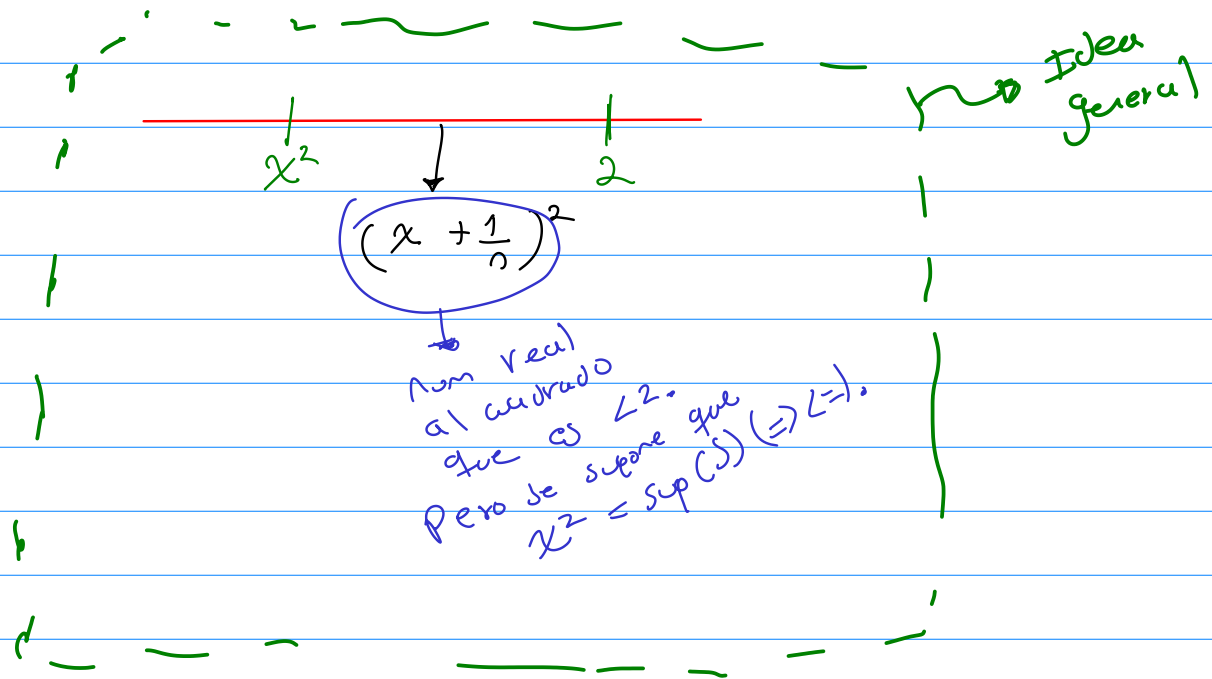 Idea
general
x² 2
(x + 1/n)²
num real
al cuadrado
que es <2.
Pero se supone que
x² = sup(S) (=> <=).